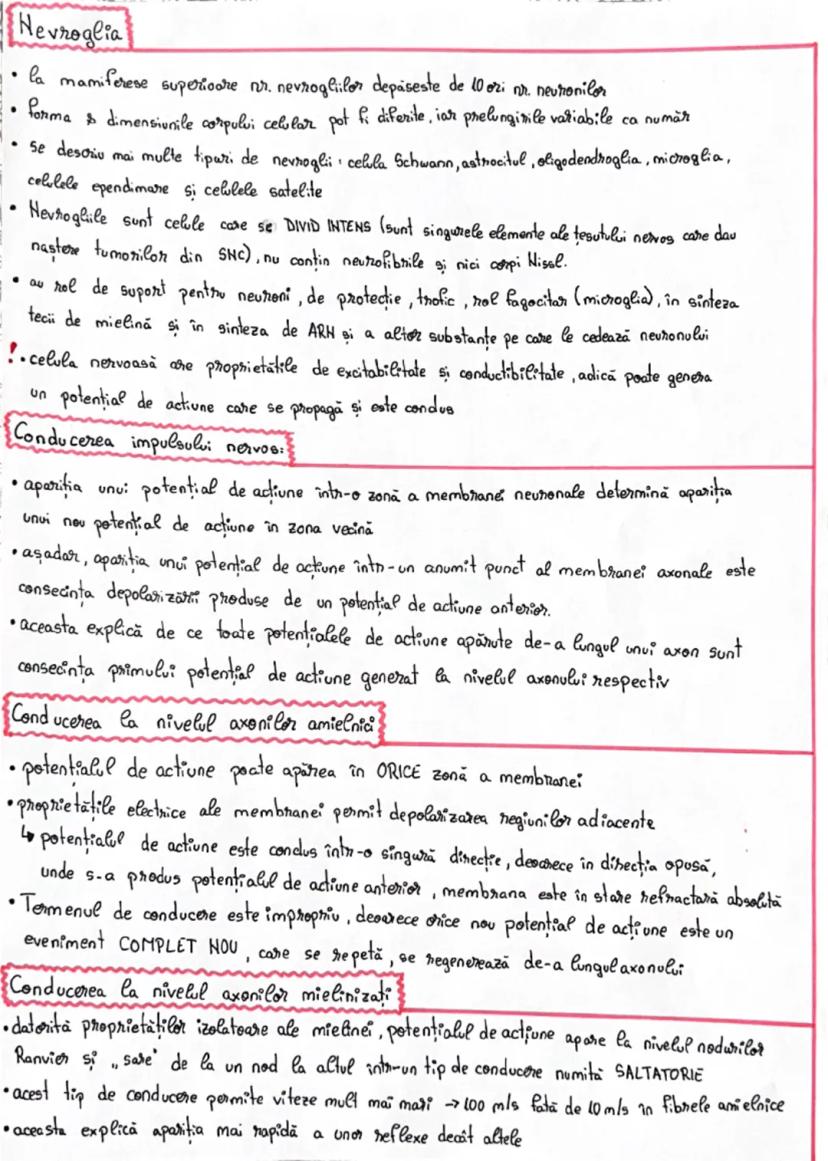 Nevroglia
• la mamiferele superioare nr. nevrogliilor depăsește de 10 ori nr. neuronilor
• forma & dimensiunile corpului celular pot fi diferite, iar prelungirile variabile ca număr
• se descriu mai multe tipuri de nevroglii: celula Schwann, astrocitul, oligodendroglia, microglia,
celulele ependimare și celulele satelite
• Nevrogliile sunt celule care se DIVID INTENS (sunt singurele elemente ale țesutului nervos care dau
naștere tumorilor din SNC), nu conțin neurofibrile și nici corpi Nissl.
• au rol de suport pentru neuroni, de protecție, trofic, rol fagocitar (microglia), în sinteza
tecii de mielină și în sinteza de ARN și a altor substanțe pe care le cedează neuronului
! • celula nervoasă are proprietățile de excitabilitate și conductibilitate, adică poate genera
un potențial de actiune care se propagă și este condus
Conducerea impulsului nervos:
• apariția unui potențial de acțiune într-o zonă a membranei neuronale determină apariția
unui nou potențial de acțiune în zona vecină
• așadar, apariția unui potențial de acțiune într-un anumit punct al membranei axonale este
consecința depolarizării produse de un potențial de actiune anterior.
• aceasta explică de ce toate potențialele de actiune apărute de-a lungul unui axon sunt
consecința primului potențial de actiune generat la nivelul axonului respectiv
Conducerea la nivelul axonilor amielnici
• potențialul de actiune poate apărea în ORICE zonă a membranei
• proprietățile electrice ale membranei permit depolarizarea regiunilor adiacente
↳ potențialul de actiune este condus într-o singură direcție, deoarece în direcția opusă,
unde s-a produs potențialul de acțiune anterior, membrana este în stare refractară absolută
• Termenul de conducere este impropriu, deoarece orice nou potențial de acțiune este un
eveniment COMPLET NOU, care se repetă, se regenerează de-a lungul axonului
Conducerea la nivelul axonilor mielinizați
• datorită proprietăților izolatoare ale mielinei, potențialul de acțiune apare la nivelul nodurilor
Ranvier și „sare" de la un nod la altul într-un tip de conducere numită SALTATORIE
• acest tip de conducere permite viteze mult mai mari → 100 m/s față de 10 m/s în fibrele amielnice
• aceasta explică apariția mai rapidă a unor reflexe decât altele